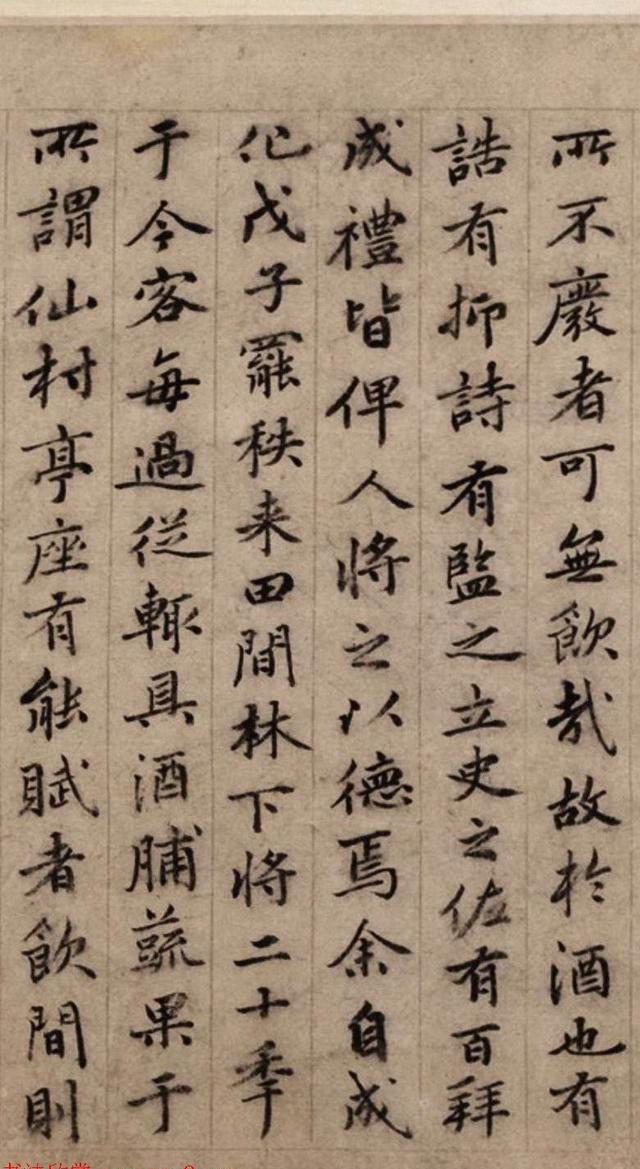 所不廢者可無飲哉故於酒也有
誥有抑詩有監之立史之佐有百拜
成禮皆俾人將之以德焉余自成
化戊子罷秩来田間林下將二十季
于今客每過從輙具酒脯蔬果于
所謂仙村亭座有能賦者飲間則